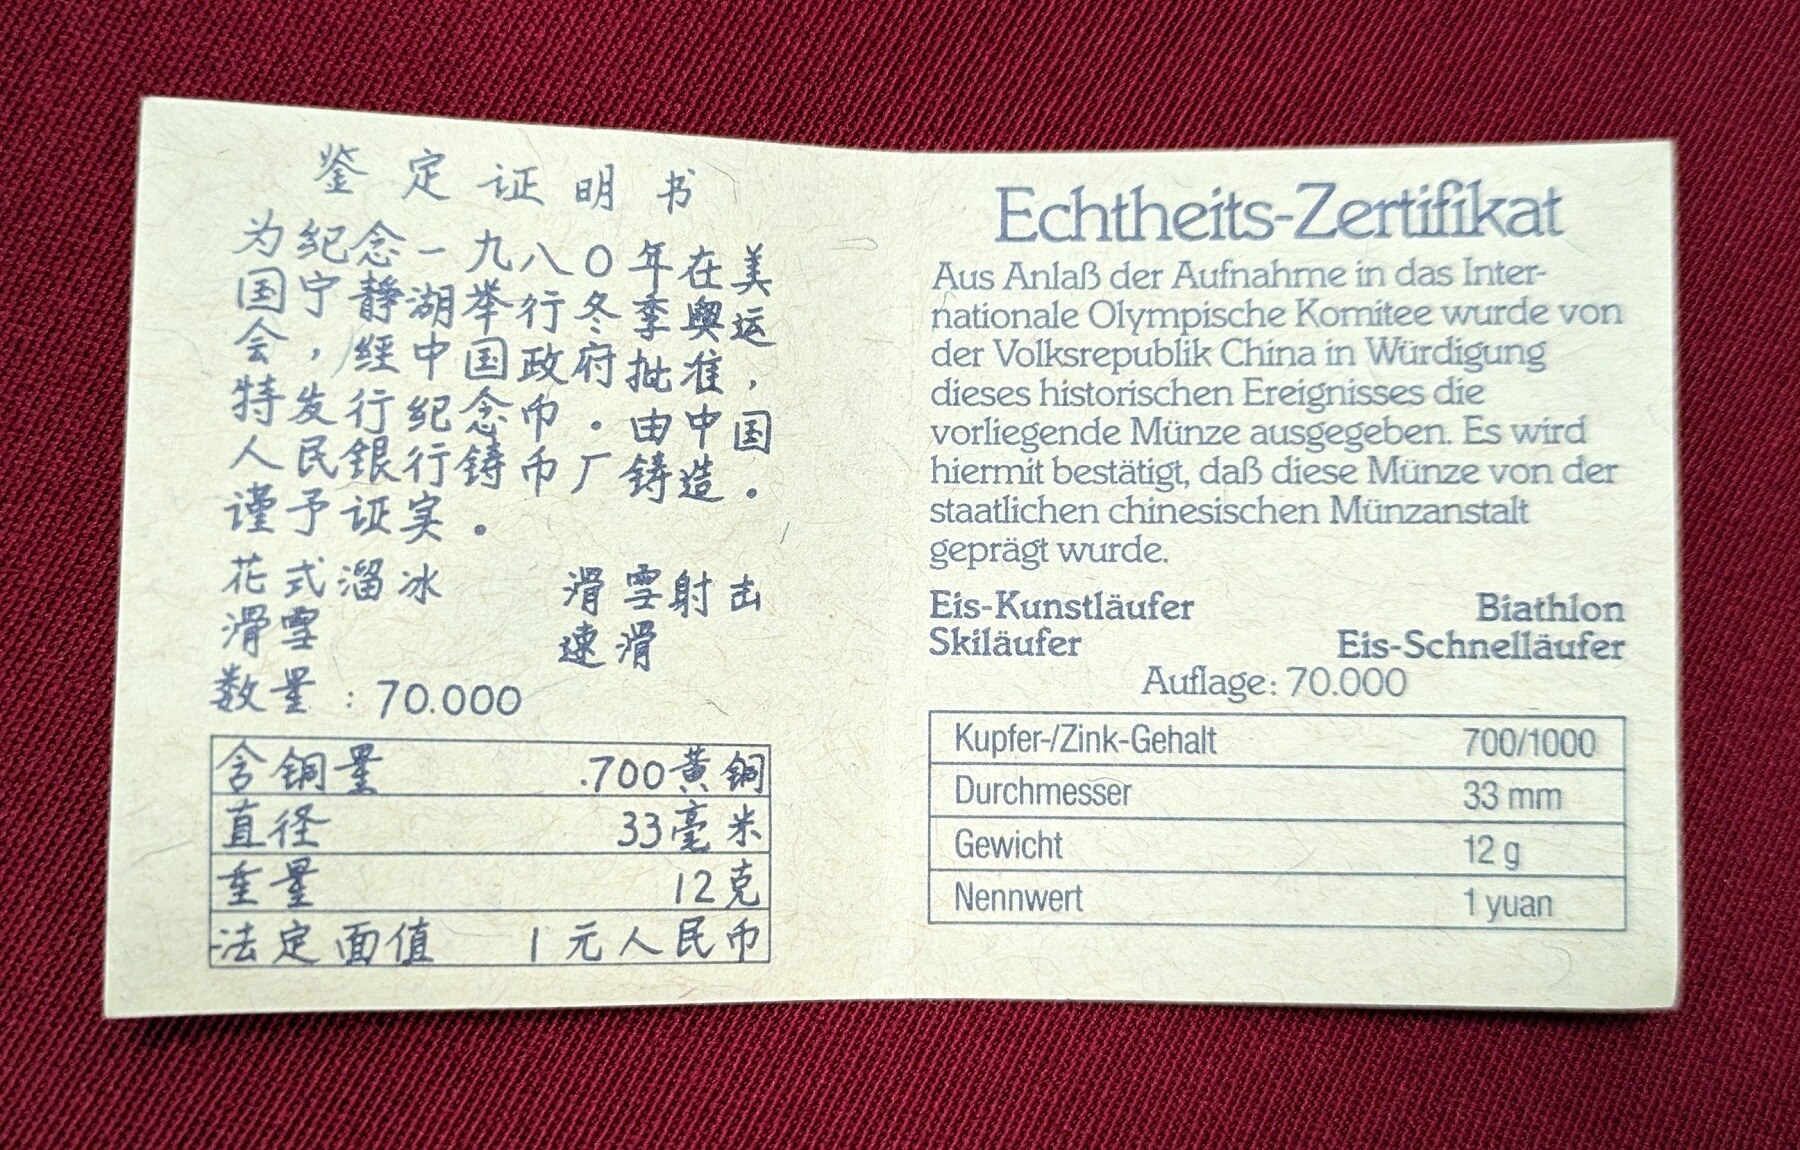 鉴定证明书
为纪念一九八〇年在美
国宁静湖举行冬季奥运
会，經中国政府批准，
特发行纪念币．由中国
人民銀行铸币厂铸造．
谨予证实．
花式溜冰 滑雪射击
滑雪 速滑
数量：70.000
含铜量 .700黄铜
直径 33毫米
重量 12克
法定面值 1元人民币
Echtheits-Zertifikat
Aus Anlaß der Aufnahme in das Inter-
nationale Olympische Komitee wurde von
der Volksrepublik China in Würdigung
dieses historischen Ereignisses die
vorliegende Münze ausgegeben. Es wird
hiermit bestätigt, daß diese Münze von der
staatlichen chinesischen Münzanstalt
geprägt wurde.
Eis-Kunstläufer Biathlon
Skiläufer Eis-Schnelläufer
Auflage: 70.000
Kupfer-/Zink-Gehalt 700/1000
Durchmesser 33 mm
Gewicht 12 g
Nennwert 1 yuan